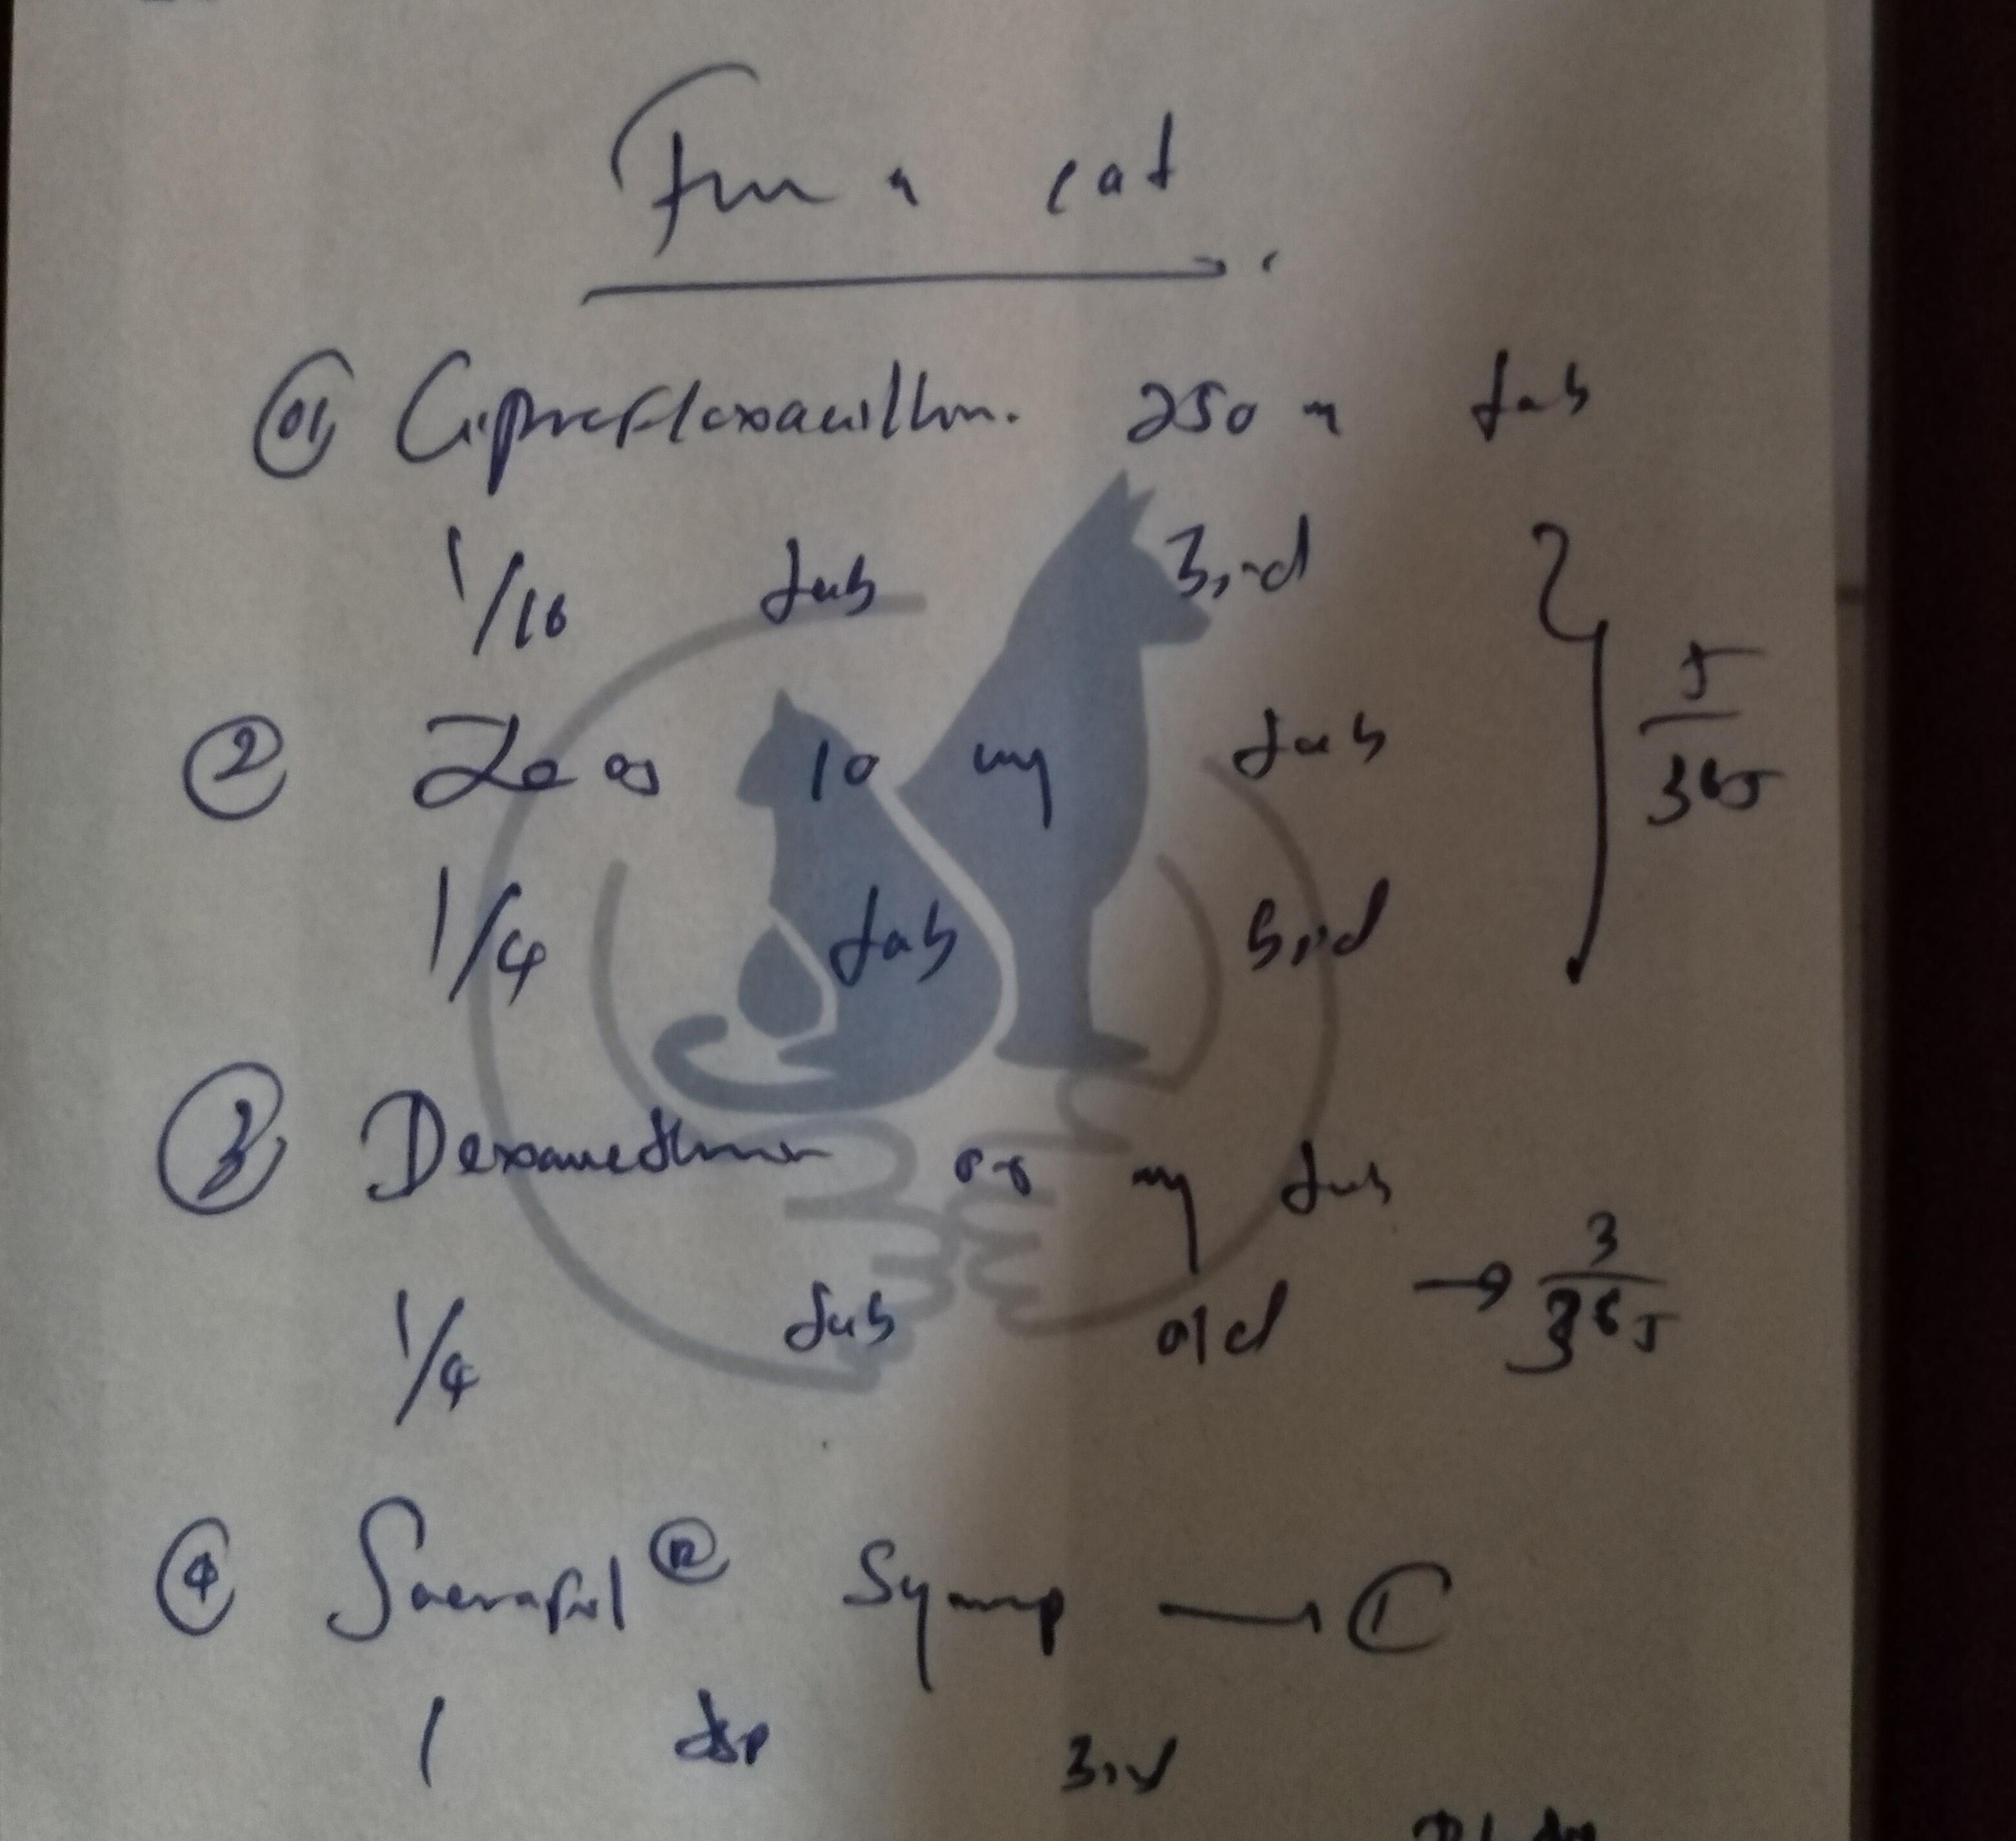 For a cat
01 Ciprofloxacillin. 250 m tab
1/16 tab B.i.d
2 Zeos 10 mg tab
1/4 tab b.i.d
5/365
3 Dexamethason 0.5 mg tab
1/4 tab o/d → 3/365
4 Syrup → 1
1 tsp B.i.d